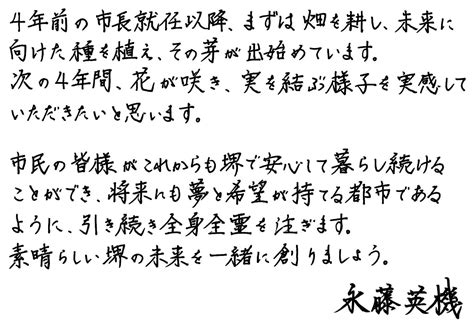 4年前の市長就任以降、まずは畑を耕し、未来に
向けた種を植え、その芽が出始めています。
次の4年間、花が咲き、実を結ぶ様子を実感して
いただきたいと思います。
市民の皆様がこれからも堺で安心して暮らし続ける
ことができ、将来にも夢と希望が持てる都市である
ように、引き続き全身全霊を注ぎます。
素晴らしい堺の未来を一緒に創りましょう。
永藤英機